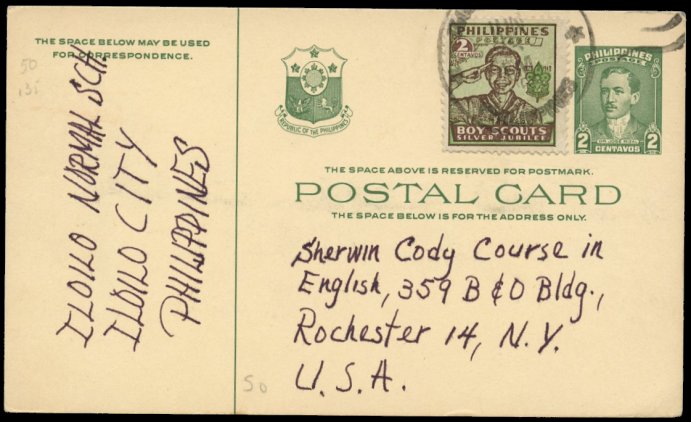 THE SPACE BELOW MAY BE USED
FOR CORRESPONDENCE.
50
.35
ILOILO NORMAL SCH
ILOILO CITY
PHILIPPINES
REPUBLIC OF THE PHILIPPINES
PHILIPPINES
POSTAGE
2
CENTAVOS
BOY SCOUTS
SILVER JUBILEE
PHILIPPINES
POSTAGE
DR. JOSE RIZAL
2 2
CENTAVOS
THE SPACE ABOVE IS RESERVED FOR POSTMARK.
POSTAL CARD
THE SPACE BELOW IS FOR THE ADDRESS ONLY.
Sherwin Cody Course in
English, 359 B & O Bldg.,
Rochester 14, N.Y.
U.S.A.
50